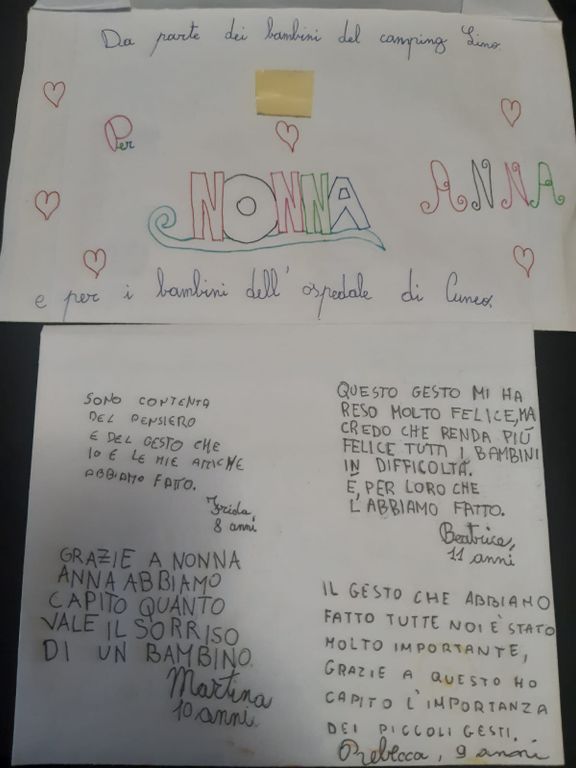 Da parte dei bambini del camping Lino.
Per
NONNA
ANNA
e per i bambini dell'ospedale di Cuneo.
SONO CONTENTA
DEL PENSIERO
E DEL GESTO CHE
IO E LE MIE AMICHE
ABBIAMO FATTO.
Frida,
8 anni
QUESTO GESTO MI HA
RESO MOLTO FELICE, MA
CREDO CHE RENDA PIÙ
FELICE TUTTI I BAMBINI
IN DIFFICOLTÀ.
È, PER LORO CHE
L'ABBIAMO FATTO.
Beatrice,
11 anni
GRAZIE A NONNA
ANNA ABBIAMO
CAPITO QUANTO
VALE IL SORRISO
DI UN BAMBINO.
Martina
10 anni.
IL GESTO CHE ABBIAMO
FATTO TUTTE NOI È STATO
MOLTO IMPORTANTE,
GRAZIE A QUESTO HO
CAPITO L'IMPORTANZA
DEI PICCOLI GESTI.
Rebecca, 9 anni